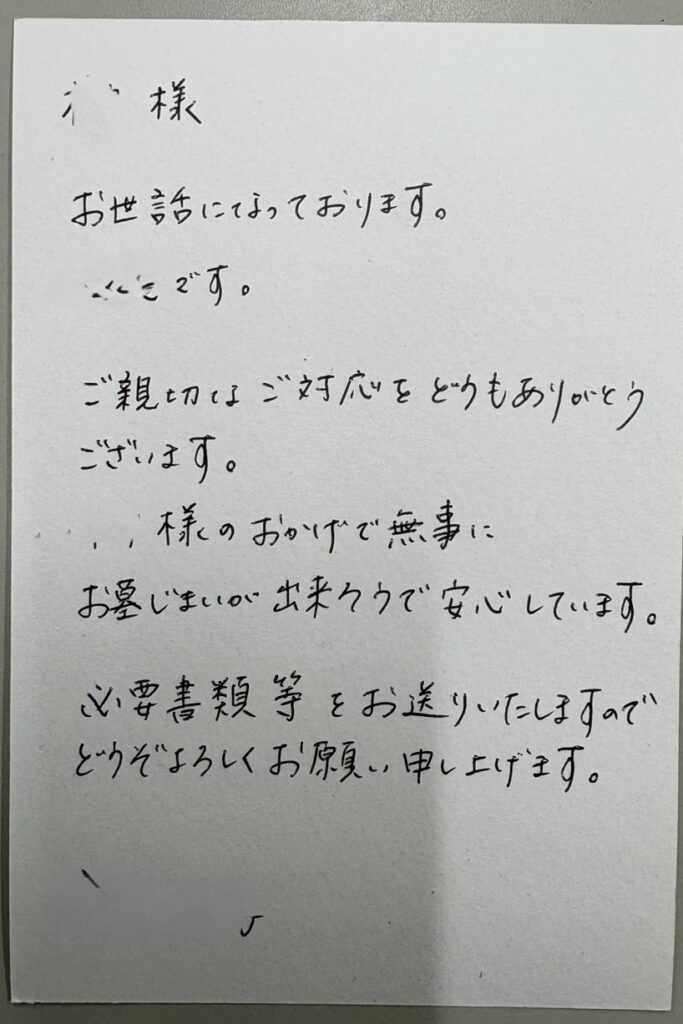 様
お世話になっております。
です。
ご親切なご対応をどうもありがとう
ございます。
様のおかげで無事に
お墓じまいが出来そうで安心しています。
必要書類等をお送りいたしますので
どうぞよろしくお願い申し上げます。